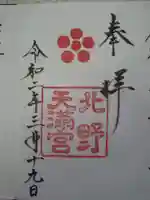 奉拝
北野
天満宮
令和二年三月十九日